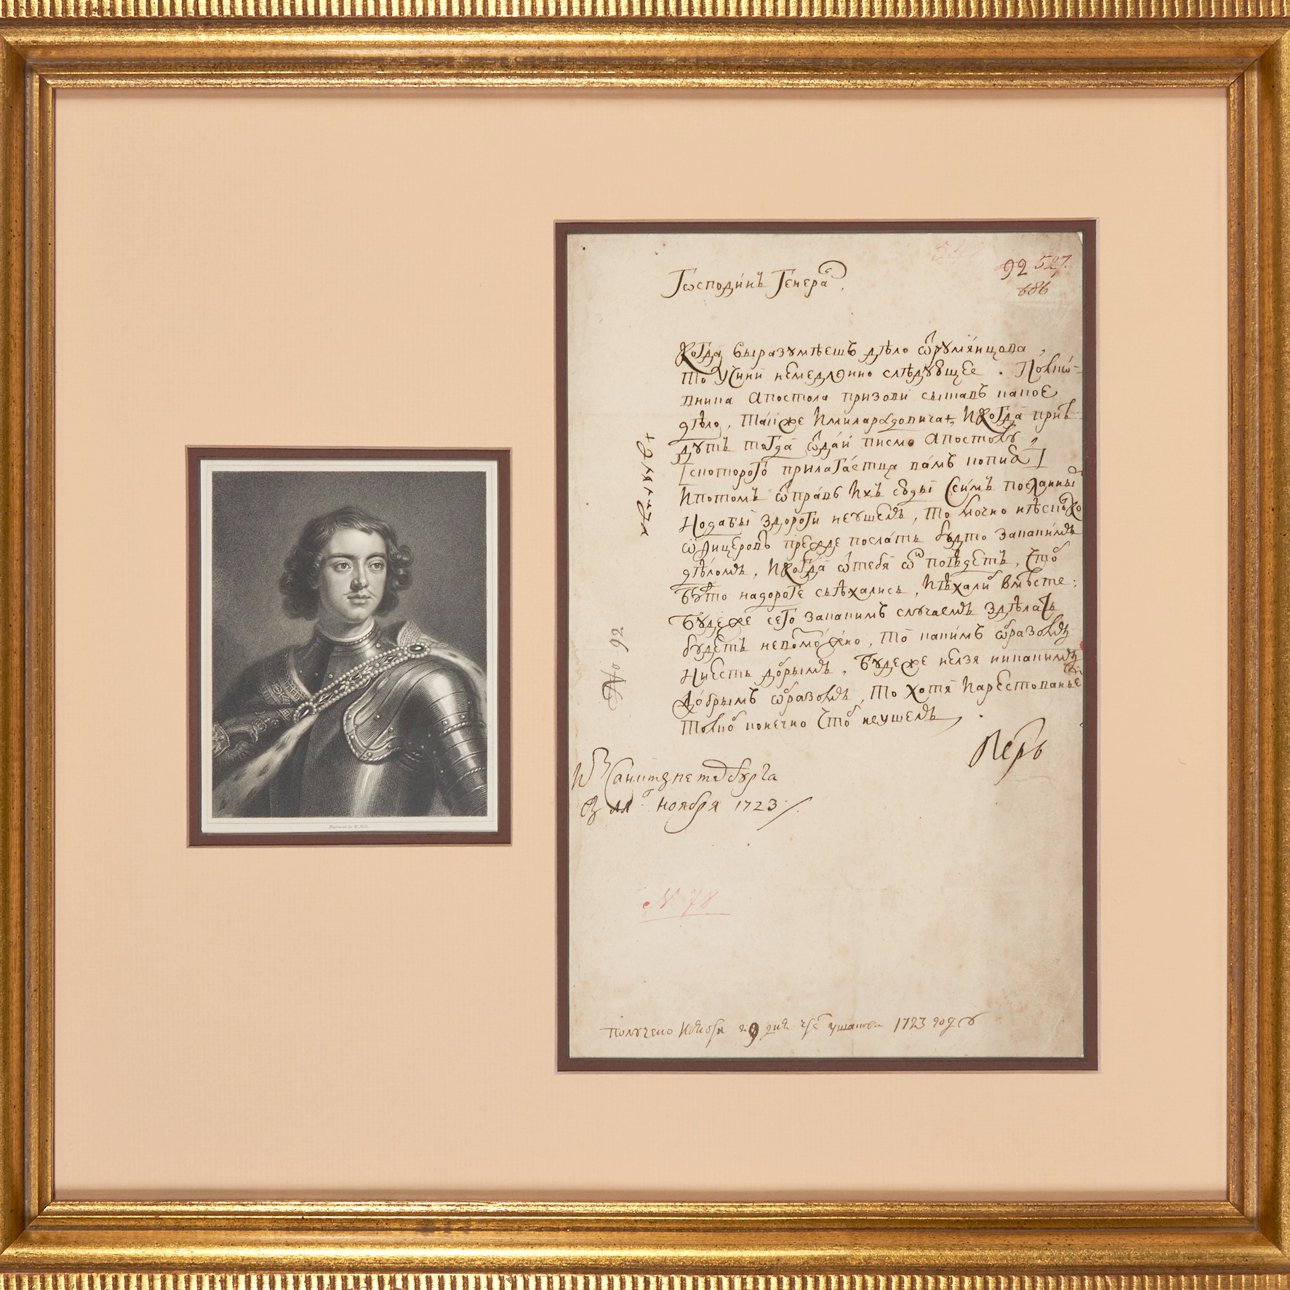 92 527.
686
Господинъ Генерал.
Когда выразумѣешъ дѣло ѿ румянцова,
то учини немедлѣнно слѣдующее. Полко-
вника апостола призови сыщавъ какое
дѣло, также Имиларадовича, И когда приі-
дутъ тогда ѿдай писмо апостолу
[с которого прилагаетца вамъ копиа]
Ипотомъ ѿправь Ихъ сюды с сим посланным
Но дабы з дороги не ушелъ, то мочно нѣсколко
ѿфицеровъ прежде послать бутто за какимъ
дѣломъ, И когда ѿ тебя поѣдетъ, чтоб
бутто на дороге съѣхались, Иѣхали вмѣсте;
Буде же сего за какимъ случаемъ здѣлать
будетъ невозможно, то какимъ образомъ
Ниесть добрымъ. Буде же нелзя никакимъ
добрымъ образомъ, то хотя И арестованьем
толко конечно чтоб не ушелъ.
Петръ
Из Санктъпетербурга
въ 11 ноября 1723.
No 92
N 78
получено Ноября 29 дня чрез ушакова 1723 году